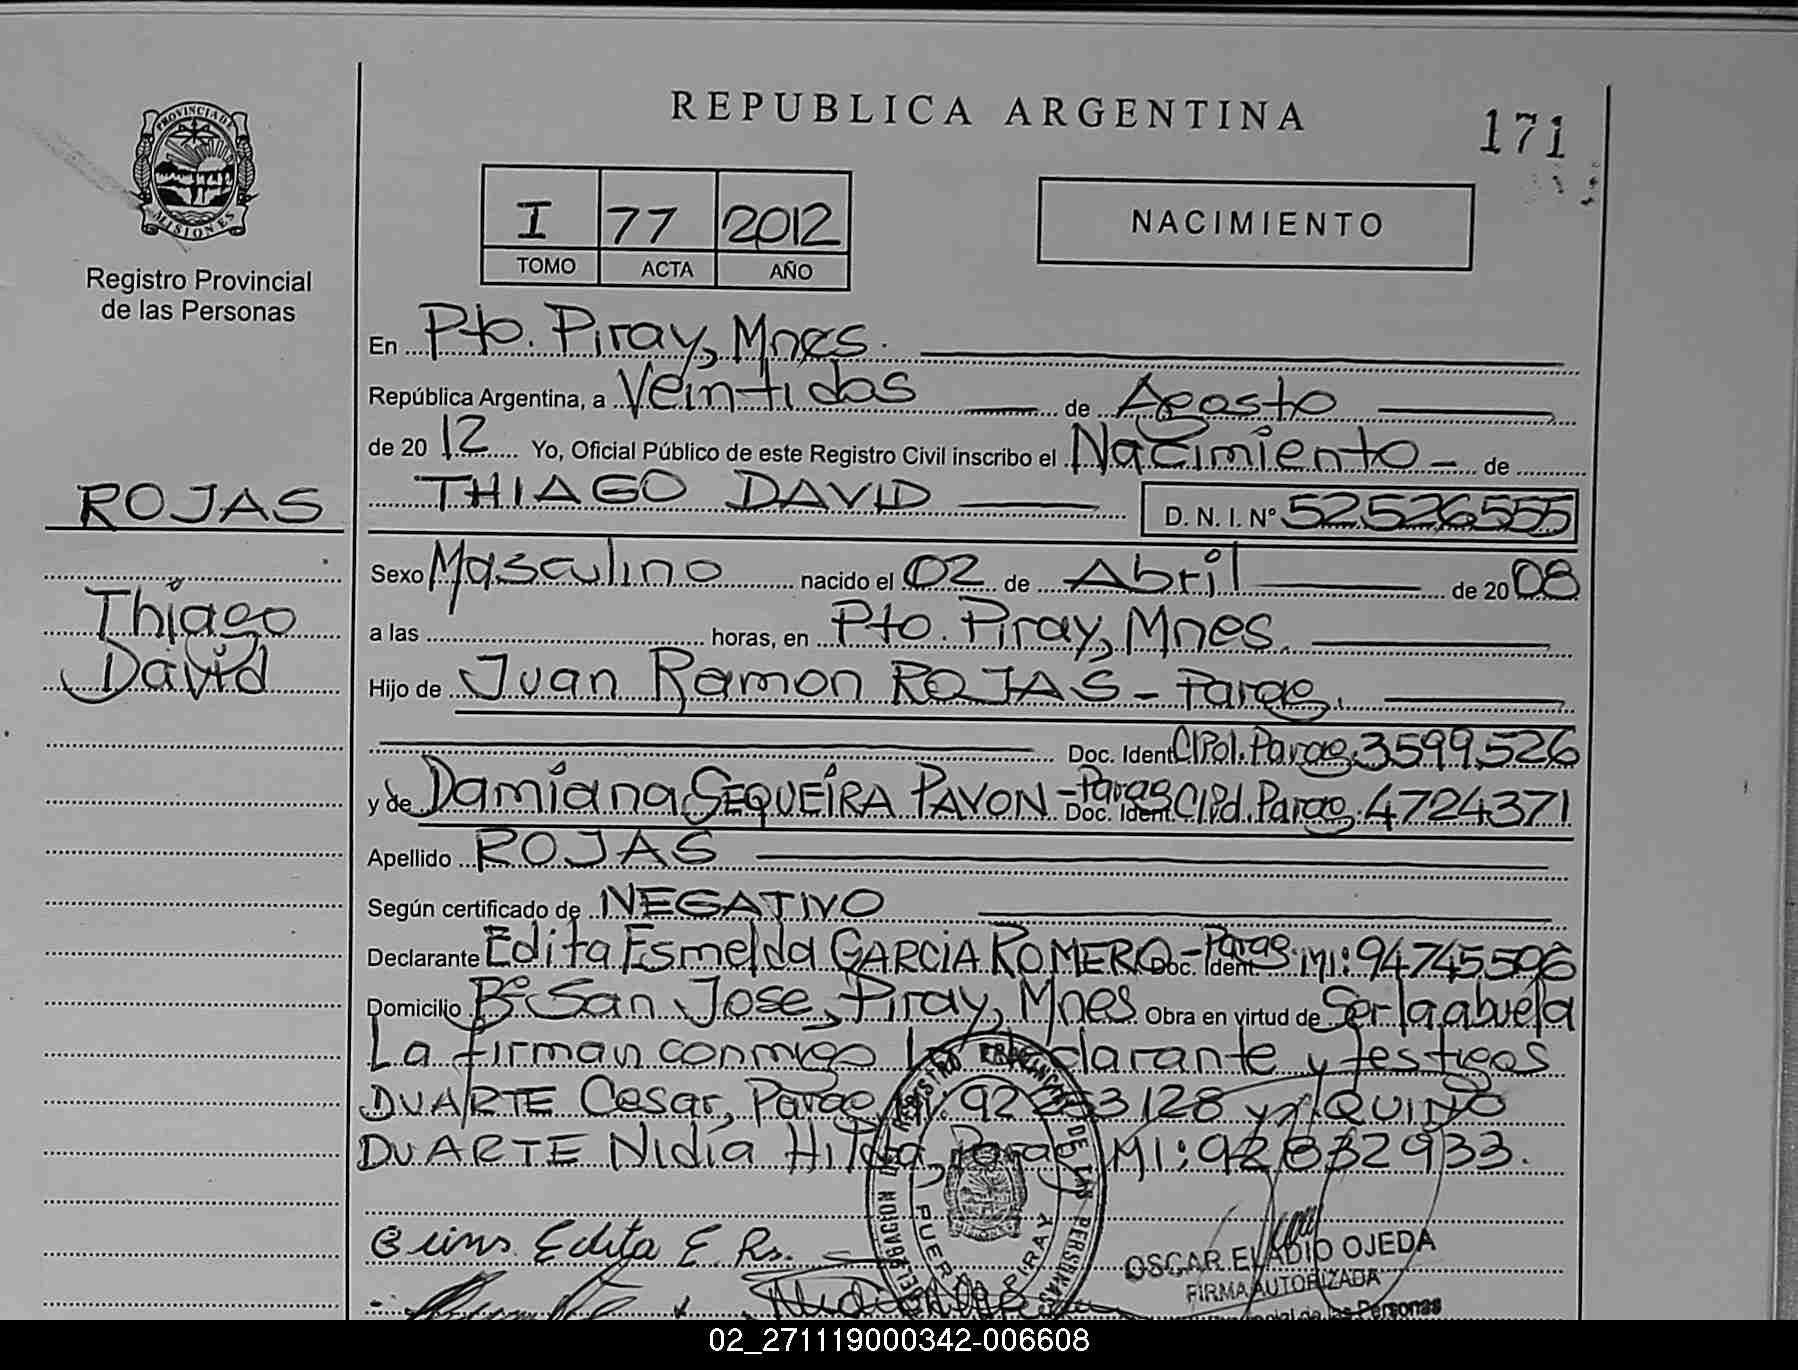 REPUBLICA ARGENTINA
171
PROVINCIA DE MISIONES
Registro Provincial
de las Personas
I 77 2012
TOMO ACTA AÑO
NACIMIENTO
En Pto. Piray, Mnes.
República Argentina, a Veintidos de Agosto
de 2012 Yo, Oficial Público de este Registro Civil inscribo el Nacimiento - de
THIAGO DAVID D. N. I. Nº 52526555
ROJAS
Thiago
David
Sexo Masculino nacido el 02 de Abril de 2008
a las horas, en Pto. Piray, Mnes.
Hijo de Juan Ramon ROJAS - Parag.
Doc. Ident CIPol. Parag. 3599526
y de Damiana SEQUEIRA PAVON - Parag Doc. Ident. CIPol. Parag. 4724371
Apellido ROJAS
Según certificado de NEGATIVO
Declarante Edita Esmelda GARCIA ROMERO - Parag. Doc. Ident. MI: 94745506
Domicilio Bº San Jose, Piray, Mnes. Obra en virtud de Ser la abuela
La firman conmigo la declarante y testigos
DUARTE Cesar, Parag. MI: 3128 y AQUINO
DUARTE Nidia Hilda, Parag. MI: 92832933.
Edita E. Rs.
REGISTRO PROVINCIAL DE LAS PERSONAS
DELEGACION
PUERTO PIRAY
OSCAR ELADIO OJEDA
FIRMA AUTORIZADA
de las Personas
02_271119000342-006608